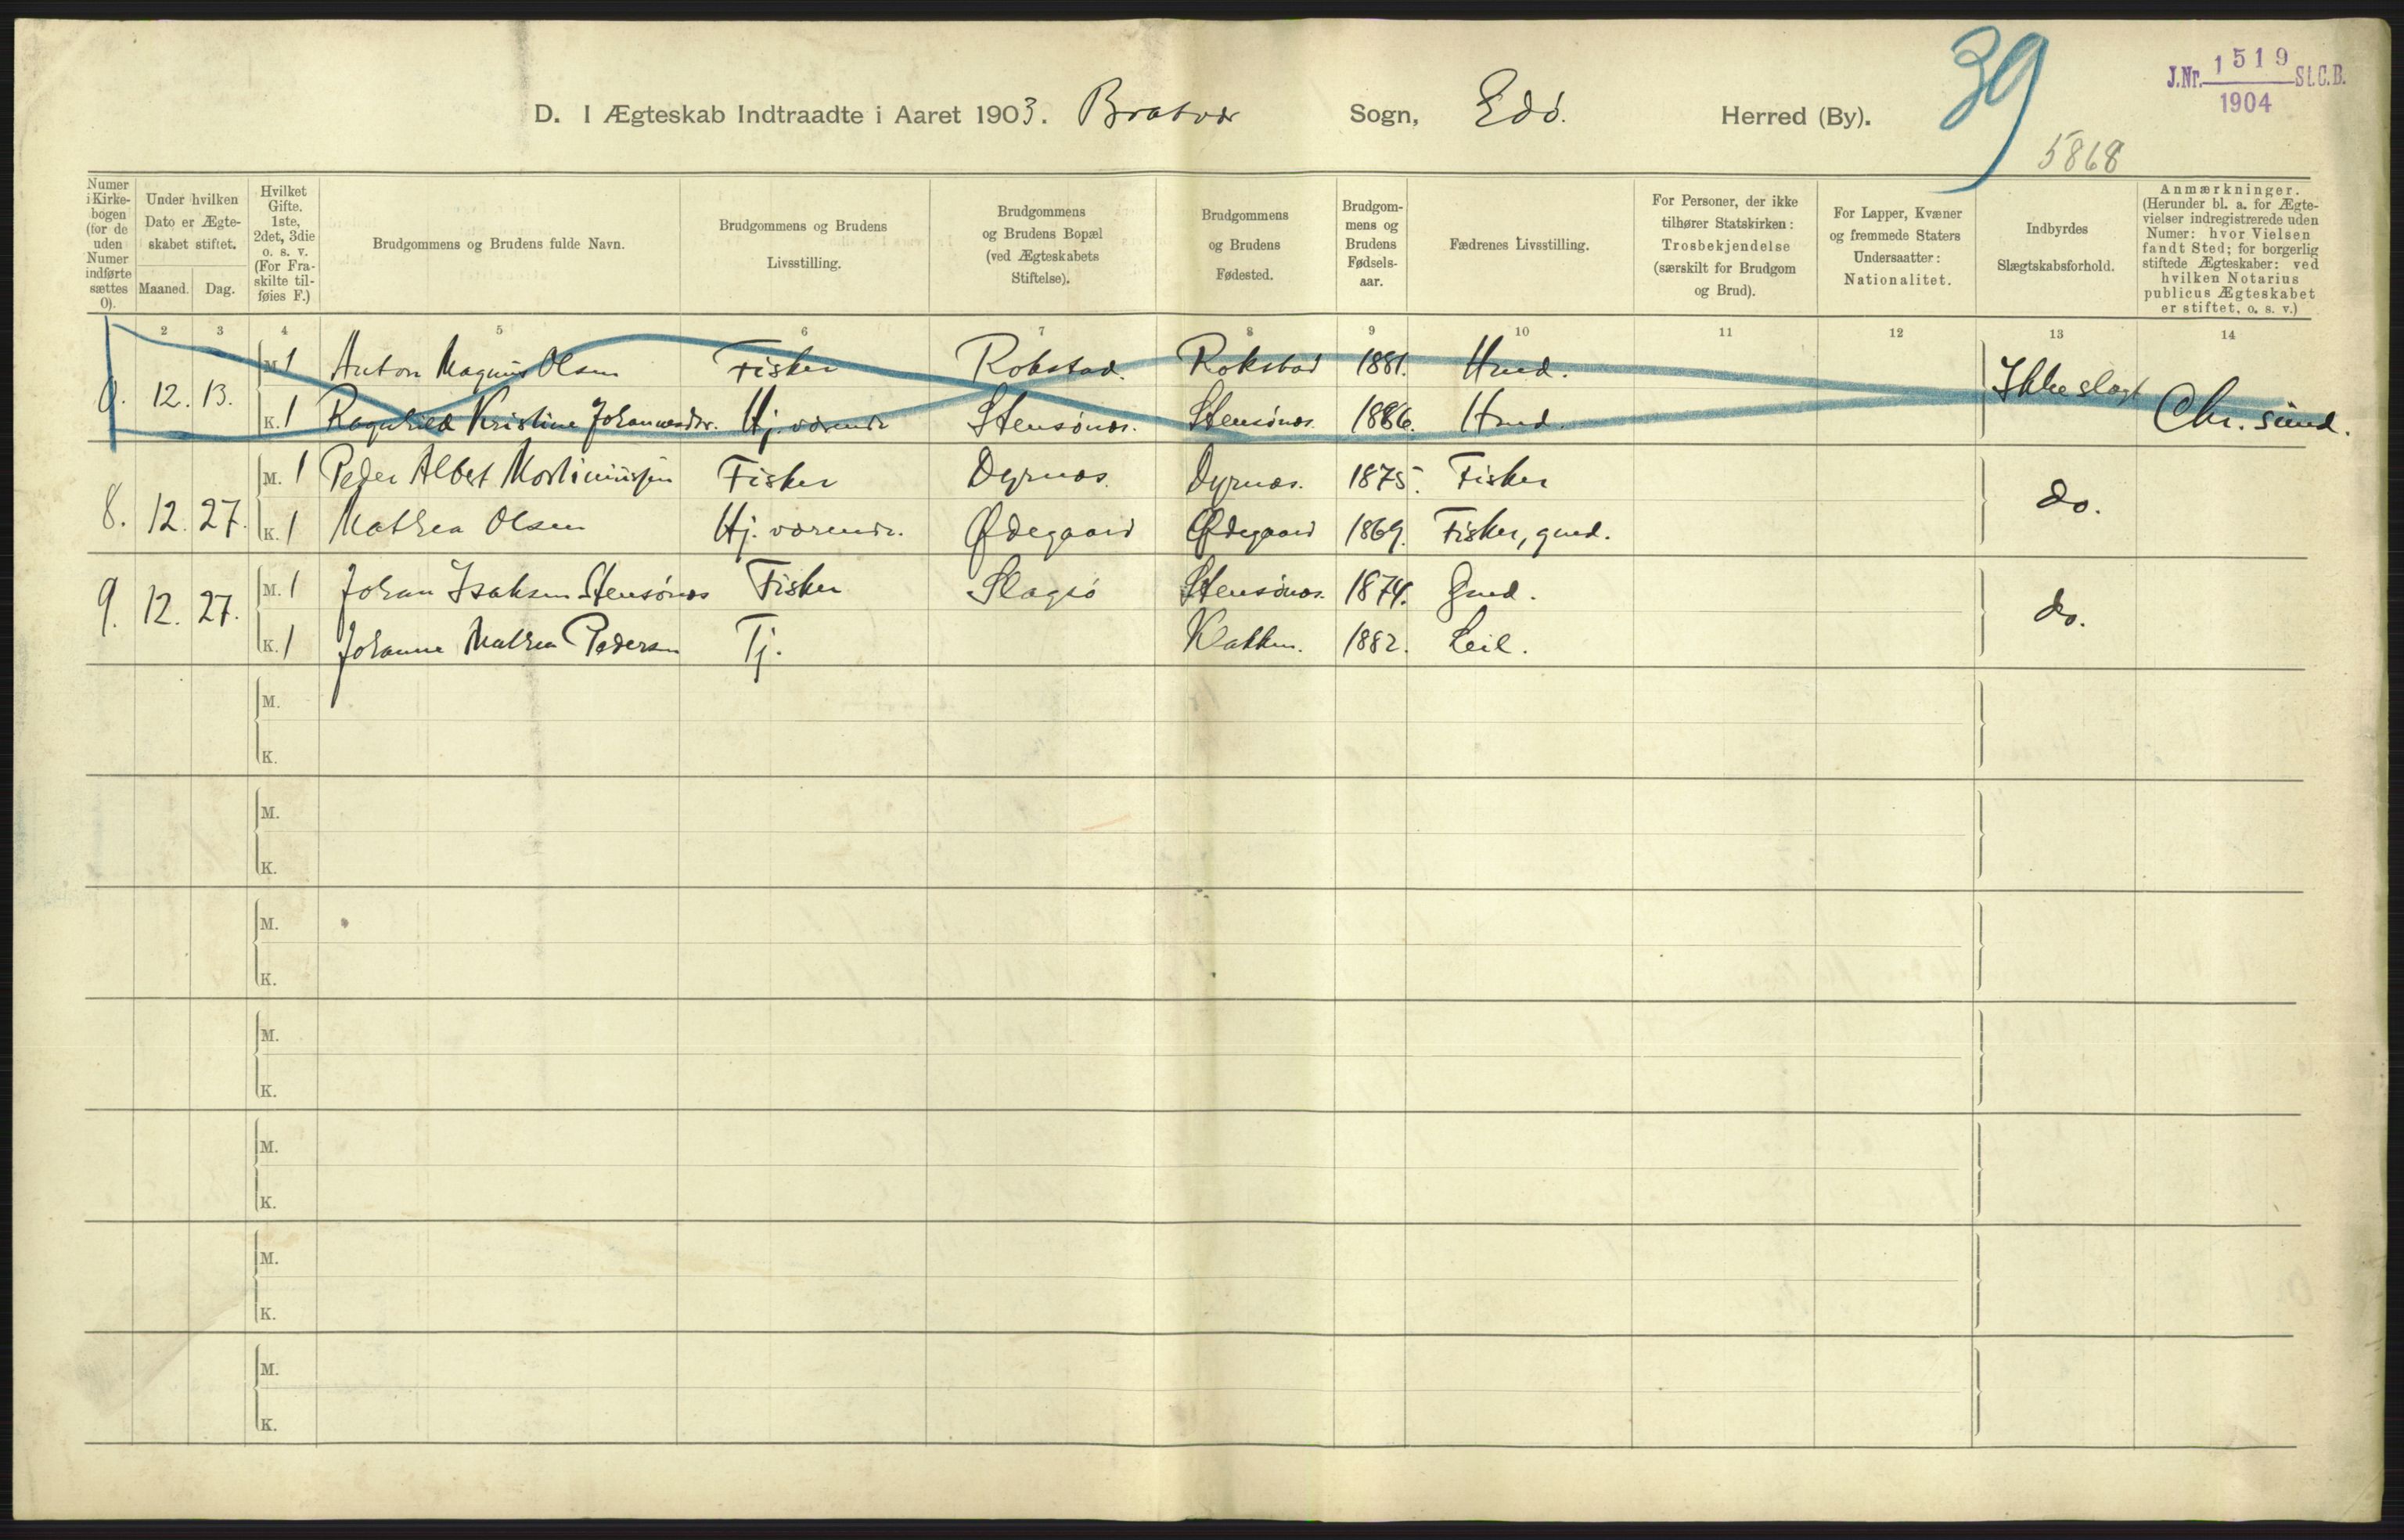 39
J.Nr. 1519 St.C.B.
1904
5868
D. I Ægteskab Indtraadte i Aaret 1903. Bratvær Sogn, Edø. Herred (By).
Numer i Kirkebogen (for de uden Numer indførte sættes 0).
Under hvilken Dato er Ægteskabet stiftet.
Maaned. Dag.
Hvilket Gifte. 1ste, 2det, 3die o. s. v. (For Fraskilte tilføies F.)
Brudgommens og Brudens fulde Navn.
Brudgommens og Brudens Livsstilling.
Brudgommens og Brudens Bopæl (ved Ægteskabets Stiftelse).
Brudgommens og Brudens Fødested.
Brudgommens og Brudens Fødselsaar.
Fædrenes Livsstilling.
For Personer, der ikke tilhører Statskirken: Trosbekjendelse (særskilt for Brudgom og Brud).
For Lapper, Kvæner og fremmede Staters Undersaatter: Nationalitet.
Indbyrdes Slægtskabsforhold.
Anmærkninger. (Herunder bl. a. for Ægtevielser indregistrerede uden Numer: hvor Vielsen fandt Sted; for borgerlig stiftede Ægteskaber: ved hvilken Notarius publicus Ægteskabet er stiftet, o. s. v.)
2 3 4 5 6 7 8 9 10 11 12 13 14
0. 12. 13. M. 1 Anton Magnus Olsen Fisker Rokstad. Rokstad 1881. Hmd. Ikke slægt Chr. sund.
K. 1 Ragnhild Kristine Johannesdtr. Hj. værende Stensønæs. Stensønæs. 1886. Hmd.
8. 12. 27. M. 1 Peder Albert Martinussen Fisker Dyrnæs. Dyrnæs. 1875. Fisker do.
K. 1 Mathea Olsen Hj. værende. Ødegaard Ødegaard 1869. Fisker, gmd.
9. 12. 27. M. 1 Johan Isaksen Stensønæs Fisker Slagsø Stensønæs. 1874. Gmd. do.
K. 1 Johanne Mathea Pedersen Tj. Klakken. 1882. Leil.
M.
K.
M.
K.
M.
K.
M.
K.
M.
K.
M.
K.
M.
K.